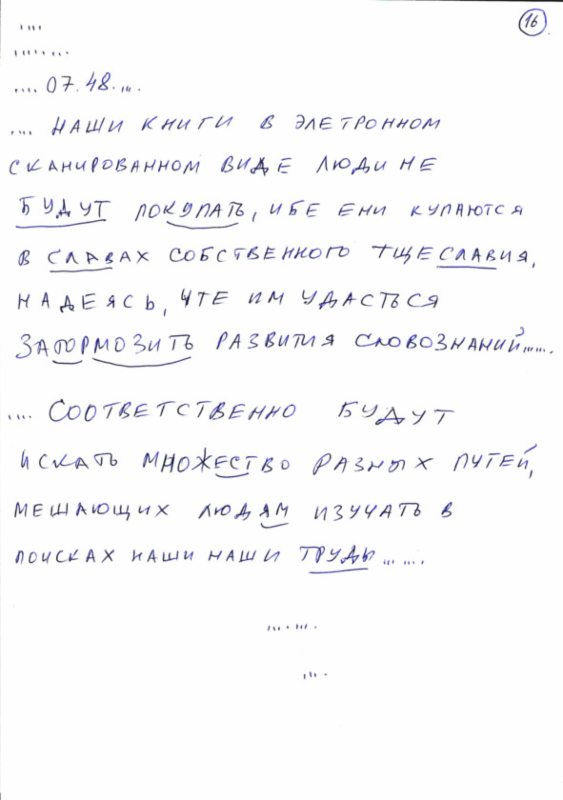 16
....
.... ....
.... 07.48.....
.... НАШИ КНИГИ В ЭЛЕТРОННОМ
СКАНИРОВАННОМ ВИДЕ ЛЮДИ НЕ
БУДУТ ПОКУПАТЬ, ИБЕ ЕНИ КУПАЮТСЯ
В СЛАВАХ СОБСТВЕННОГО ТЩЕСЛАВИЯ,
НАДЕЯСЬ, ЧТЕ ИМ УДАСТЬСЯ
ЗАТОРМОЗИТЬ РАЗВИТИЯ СЛОВОЗНАНИЙ.......
.... СООТВЕТСТВЕННО БУДУТ
ИСКАТЬ МНОЖЕСТВО РАЗНЫХ ПУТЕЙ,
МЕШАЮЩИХ ЛЮДЯМ ИЗУЧАТЬ В
ПОИСКАХ НАШИ НАШИ ТРУДЫ.......
....·....
....